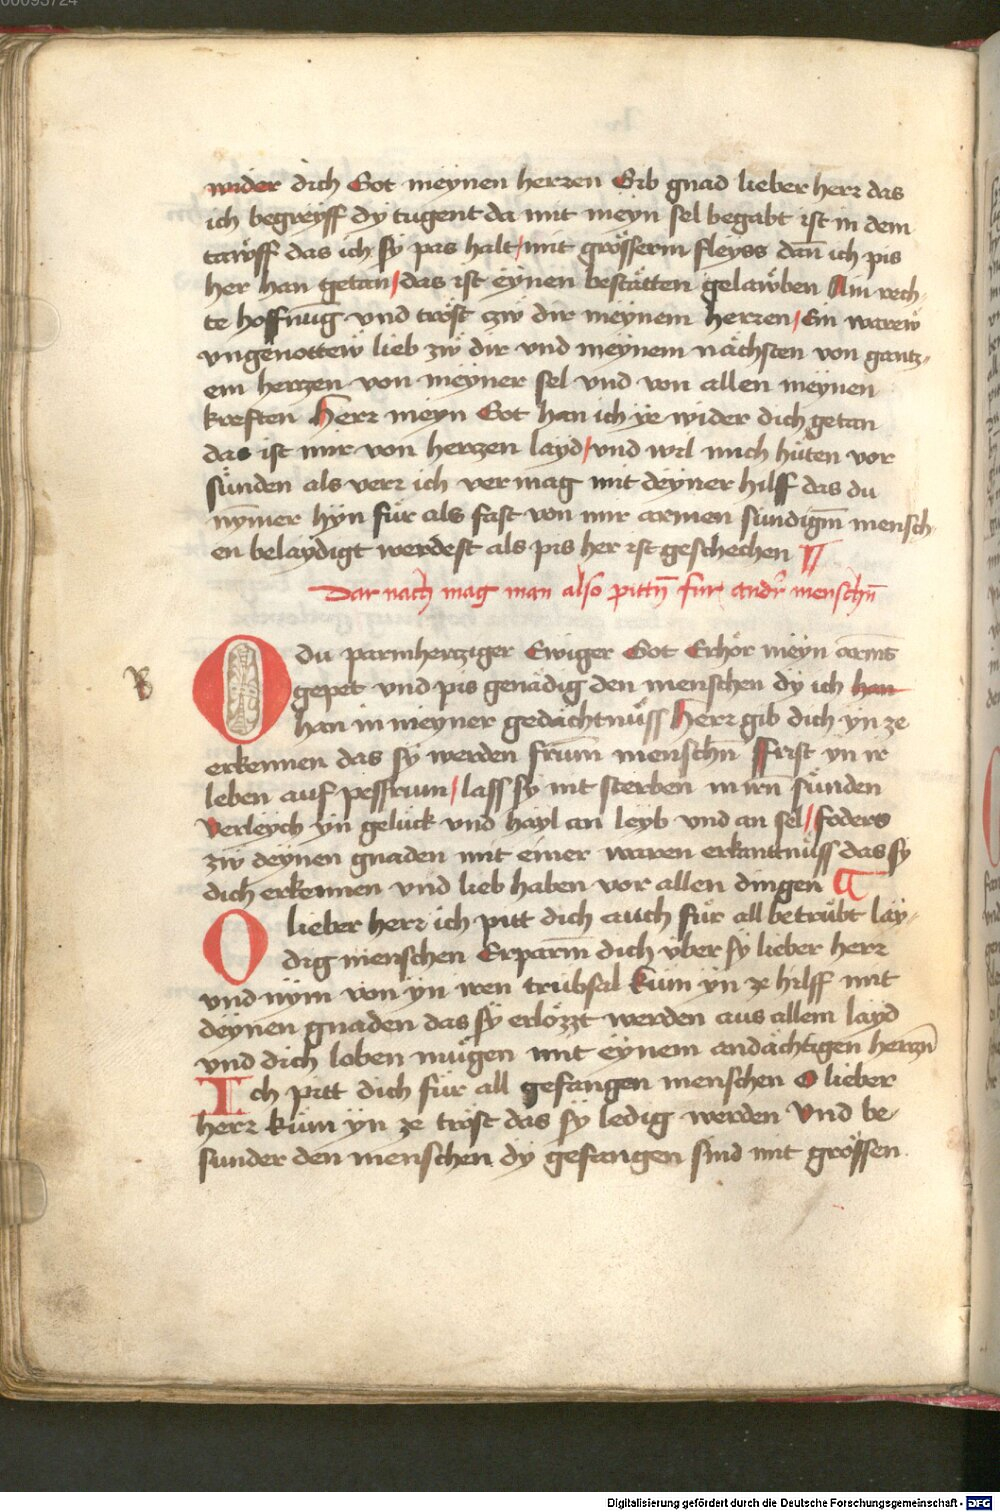 00093724
wider dich Got meynen herren Gib gnad lieber herr das
ich begreyff dy tugent da mit meyn sel begabt ist in dem
tawff das ich sy pas halt / mit grösserm fleyss dan̄ ich pis
her han getan / das ist eÿnen bestätten gelawben Ain rech-
te hoffnu̅g vnd tröst czw dir meÿnem herzen / Ein warew
vngenottew lieb zw dir vnd meÿnem nächsten von gantz-
em hertzen von meÿner sel vnd von allen meÿnen
kreften Herr meyn Got han ich ÿe wider dich getan
das ist mir von hertzen layd / vnd wil mich hüten vor
sünden als verr ich vermag mit deÿner hilff das du
nÿmer hÿn für als fast von mir armen sündigm̄ mensch-
en belaydigt werdest als pis her ist geschechen
Dar nach mag man also pittn̄ fur andr̄ menschn̄
O du parmhertziger Ewiger Got Erhör meÿn arms̄
gepet vnd pis genädig den menschen dy ich han
han in meyner gedächtnüss Herr gib dich ÿn ze
erkennen das sÿ werden frum̄ menschn̄ Frist yn ir
leben auf pessrum / lass sy nit sterben in irn̄ sünden
Verleych yn gelück vnd hayl an leyb vnd an sel / foders
zw deÿnen gnaden mit einer waren erkantnüss das sy
dich erkennen vnd lieb haben vor allen dingen
O lieber herr ich pitt dich auch für all betrübt lay-
dig menschen Erparm̄ dich über sy lieber herr
vnd nÿm von ÿn iren trübsal Küm ÿn ze hilff mit
deÿnen gnaden das sÿ erlözzt werden aus allem layd
vnd dich loben mügen mit eÿnem andächtigen herrzn̄
Ich pitt dich für all gefangen menschen O lieber
herr küm ÿn ze tröst das sy ledig werden Vnd be-
sunder den menschen dy gefangen sind mit grössen
Digitalisierung gefördert durch die Deutsche Forschungsgemeinschaft - DFG